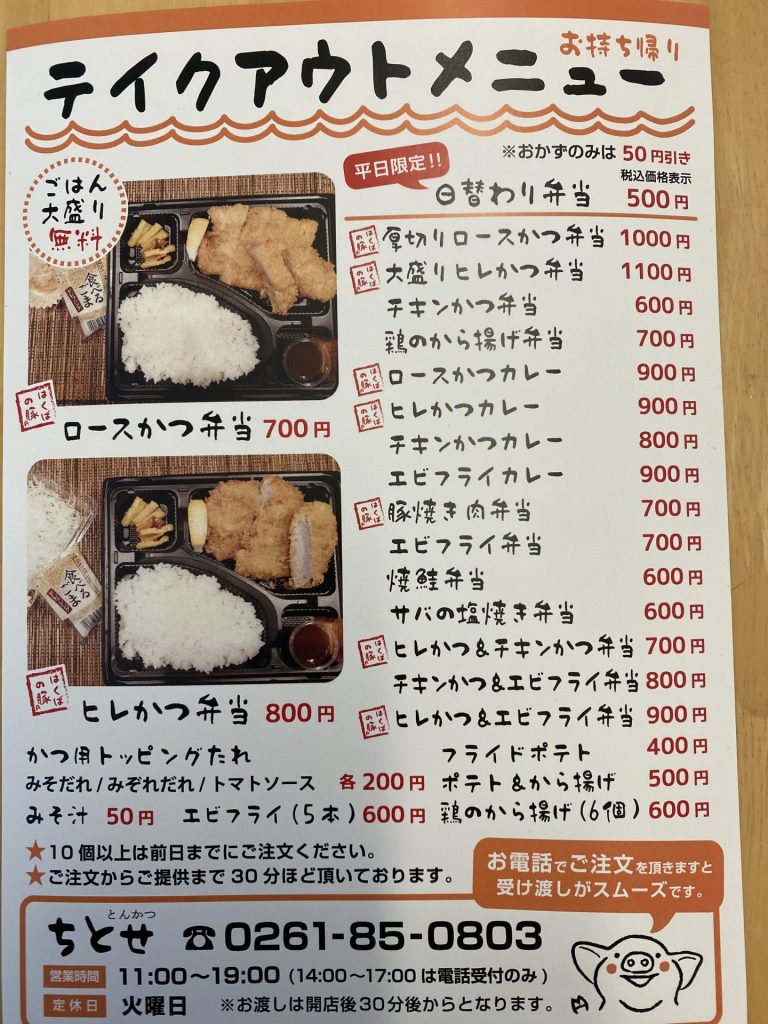 お持ち帰り
テイクアウトメニュー
ごはん
大盛り
無料
食べる
ごま
はくば
の豚
ロースかつ弁当 700円
食べる
ごま
はくば
の豚
ヒレかつ弁当 800円
※おかずのみは 50円引き
税込価格表示
平日限定!!
日替わり弁当 500円
はくばの豚 厚切りロースかつ弁当 1000円
はくばの豚 大盛りヒレかつ弁当 1100円
チキンかつ弁当 600円
鶏のから揚げ弁当 700円
はくばの豚 ロースかつカレー 900円
はくばの豚 ヒレかつカレー 900円
チキンかつカレー 800円
エビフライカレー 900円
はくばの豚 豚焼き肉弁当 700円
エビフライ弁当 700円
焼鮭弁当 600円
サバの塩焼き弁当 600円
はくばの豚 ヒレかつ&チキンかつ弁当 700円
チキンかつ&エビフライ弁当 800円
はくばの豚 ヒレかつ&エビフライ弁当 900円
かつ用トッピングたれ
みそだれ/みぞれだれ/トマトソース 各200円
みそ汁 50円 エビフライ(5本)600円
フライドポテト 400円
ポテト&から揚げ 500円
鶏のから揚げ(6個)600円
★10個以上は前日までにご注文ください。
★ご注文からご提供まで30分ほど頂いております。
お電話でご注文を頂きますと
受け渡しがスムーズです。
とんかつ
ちとせ ☎0261-85-0803
営業時間 11:00〜19:00(14:00〜17:00は電話受付のみ)
定休日 火曜日 ※お渡しは開店後30分後からとなります。